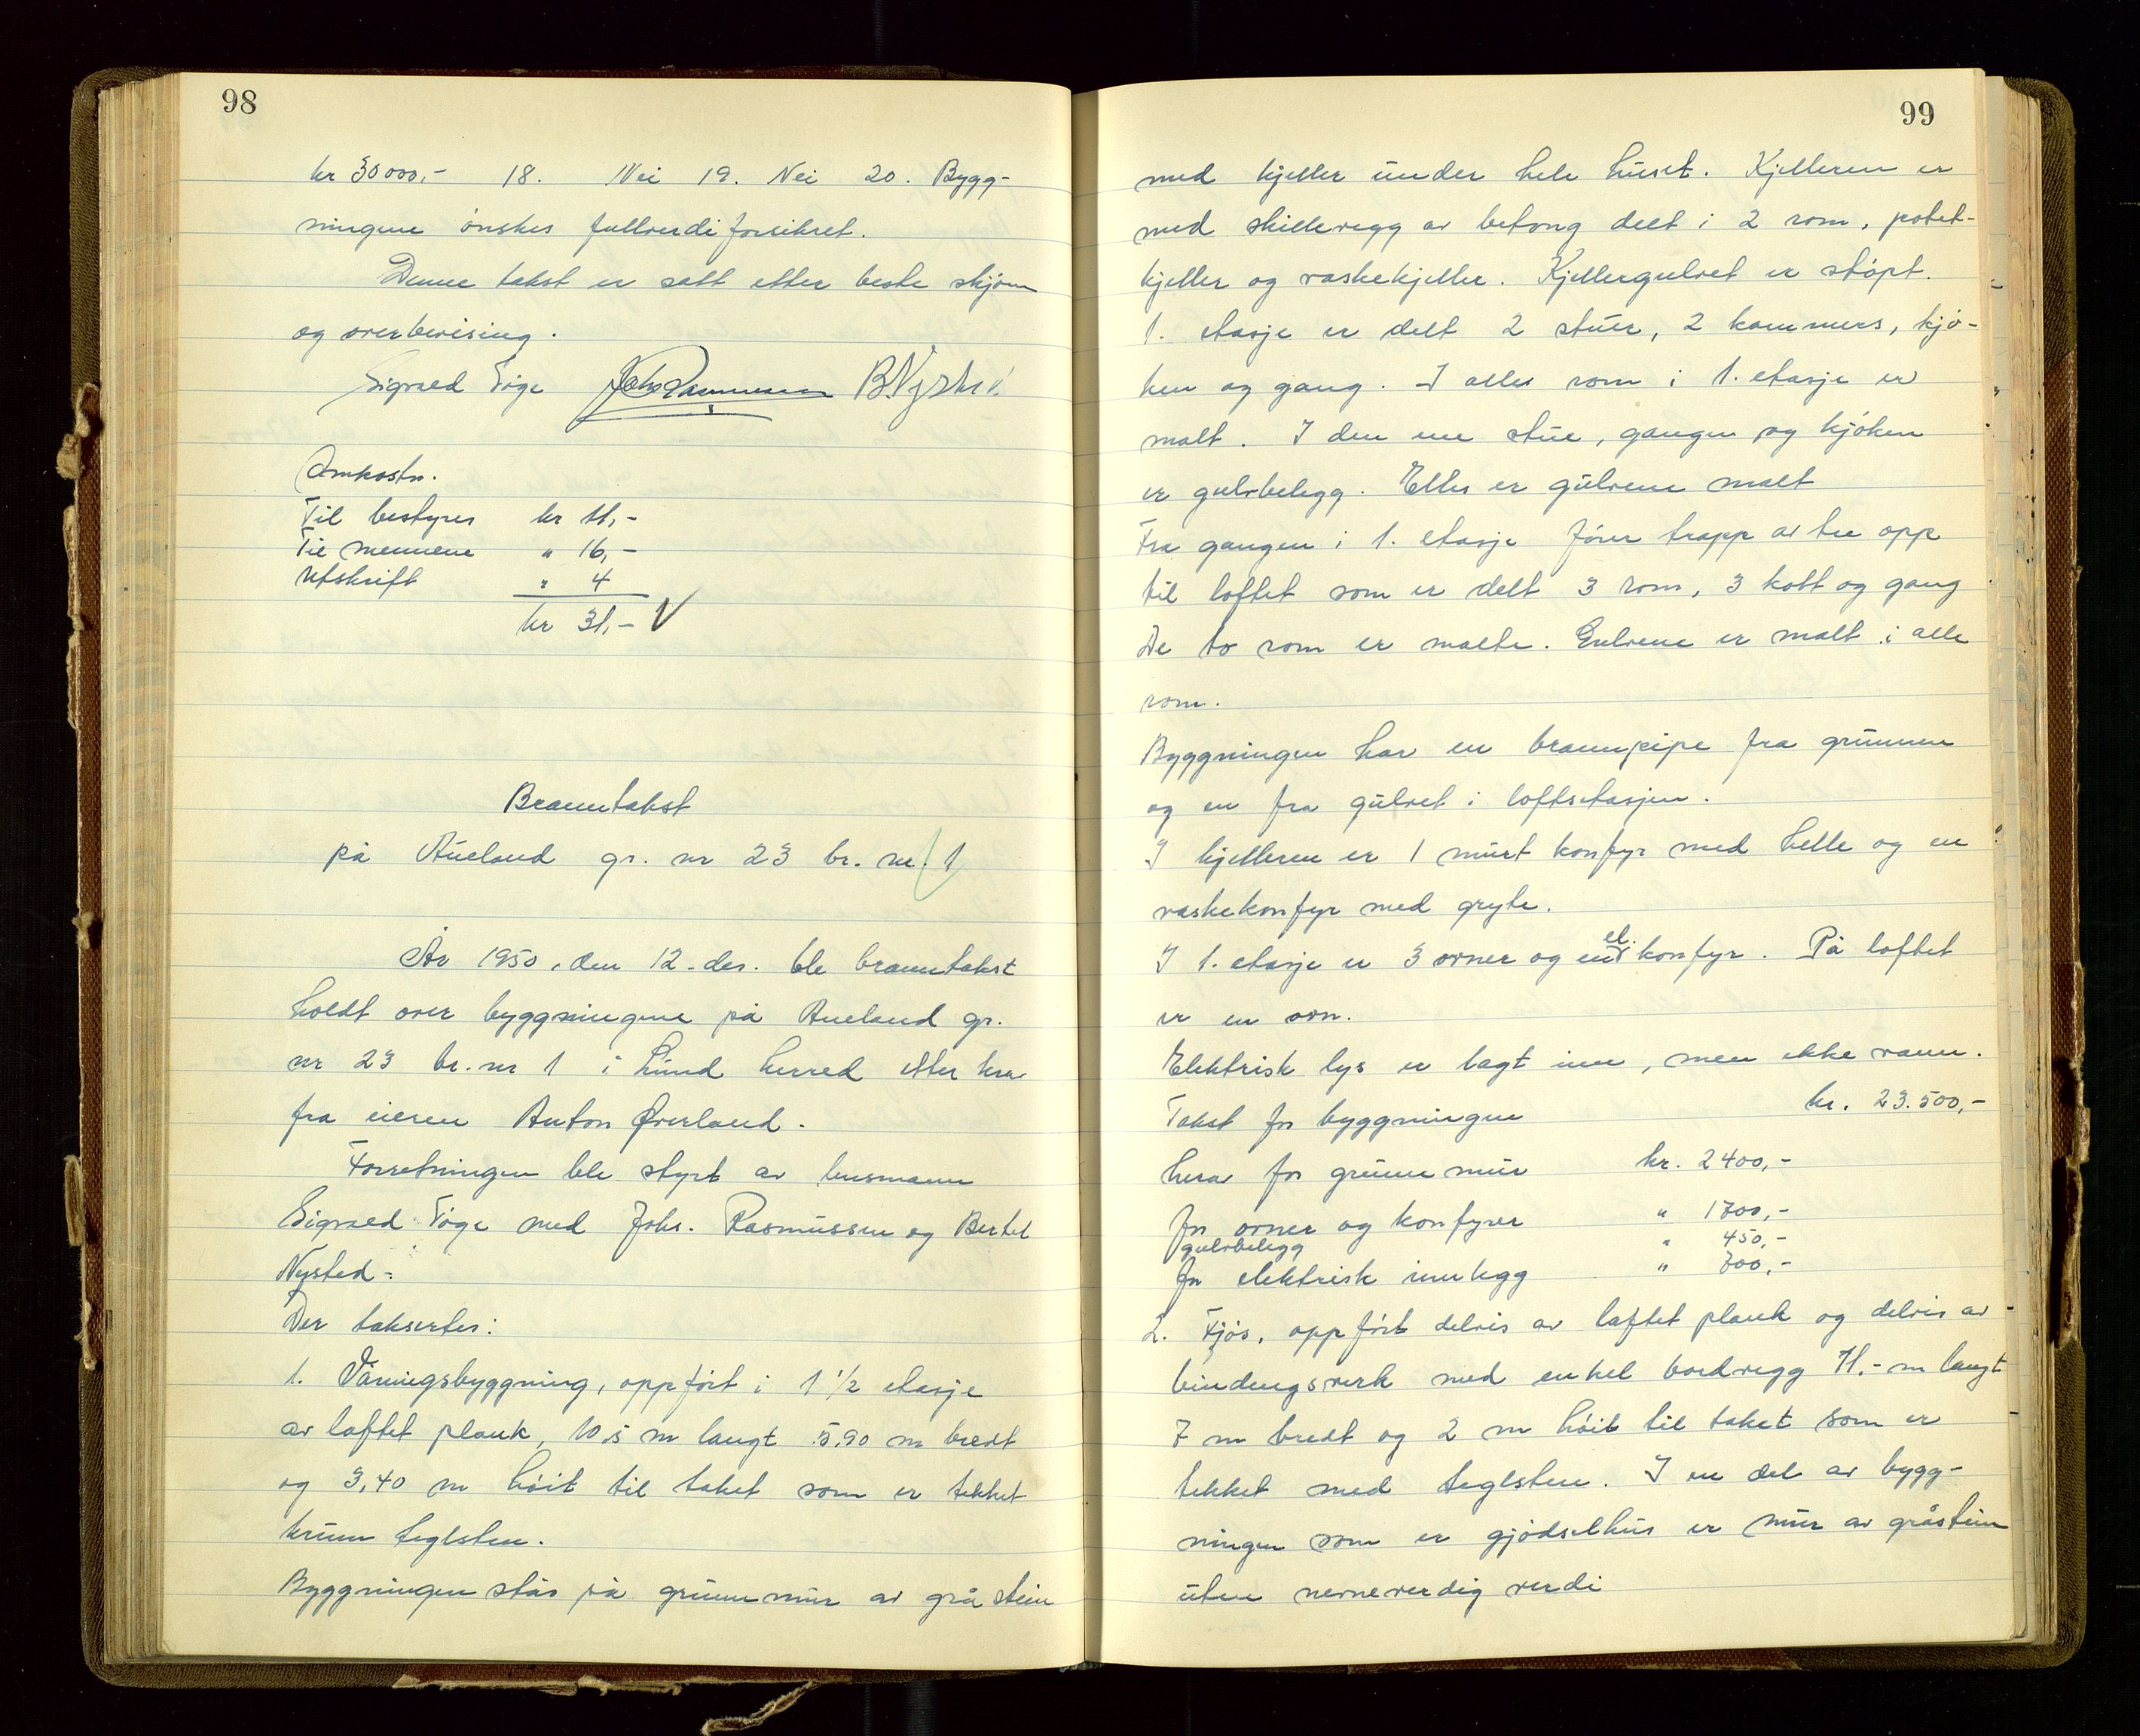 98
kr 30000,- 18. Nei 19. Nei 20. Bygg-
ningene ønskes fullverdiforsikret.
Denne takst er satt etter beste skjønn
og overbevising.
Sigvald Tøge Johs Rasmussen B Nysted
Omkostn.
Til bestyrer kr 11,-
Til mennene " 16,-
Utskrift " 4
kr 31,- V
Branntakst
på Aueland gr. nr 23 br. nr. 1
År 1950, den 12. des. ble branntakst
holdt over byggningene på Aueland gr.
nr 23 br. nr 1 i Lund herred etter krav
fra eieren Anton Øverland.
Forretningen ble styrt av lensmann
Sigvald Tøge med Johs. Rasmussen og Bertel
Nysted.
Der taksertes:
1. Våningsbyggning, oppført i 1 1/2 etasje
av laftet plank, 10,5 m langt 5,90 m bredt
og 3,40 m høit til taket som er tekket
krum teglsten.
Byggningen står på grunnmur av gråstein
99
med kjeller under hele huset. Kjelleren er
med skillevegg av betong delt i 2 rom, potet-
kjeller og vaskekjeller. Kjellergulvet er støpt.
1. etasje er delt 2 stuer, 2 kammers, kjø-
ken og gang. I alle rom i 1. etasje er
malt. I den ene stue, gangen og kjøken
er gulvbelegg. Elles er gulvene malt
Fra gangen i 1. etasje fører trapp av tre opp
til loftet som er delt 3 rom, 3 kott og gang
De to rom er malte. Gulvene er malt i alle
rom.
Byggningen har en brannpipe fra grunnen
og en fra gulvet i loftsetasjen.
I kjelleren er 1 murt konfyr med helle og en
vaskekonfyr med gryte.
I 1. etasje er 3 ovner og en el. konfyr. På loftet
er en ovn.
Elektrisk lys er lagt inn, men ikke vann.
Takst for byggningen kr. 23.500,-
herav for grunnmur kr. 2400,-
for ovner og konfyrer " 1700,-
gulvbelegg " 450,-
for elektrisk innlegg " 700,-
2. Fjøs, oppført delvis av laftet plank og delvis av
bindingsverk med enkel bordvegg 11,- m langt
7 m bredt og 2 m høit til taket som er
tekket med teglsten. I en del av bygg-
ningen som er gjødselhus er mur av gråstein
uten nevneverdig verdi